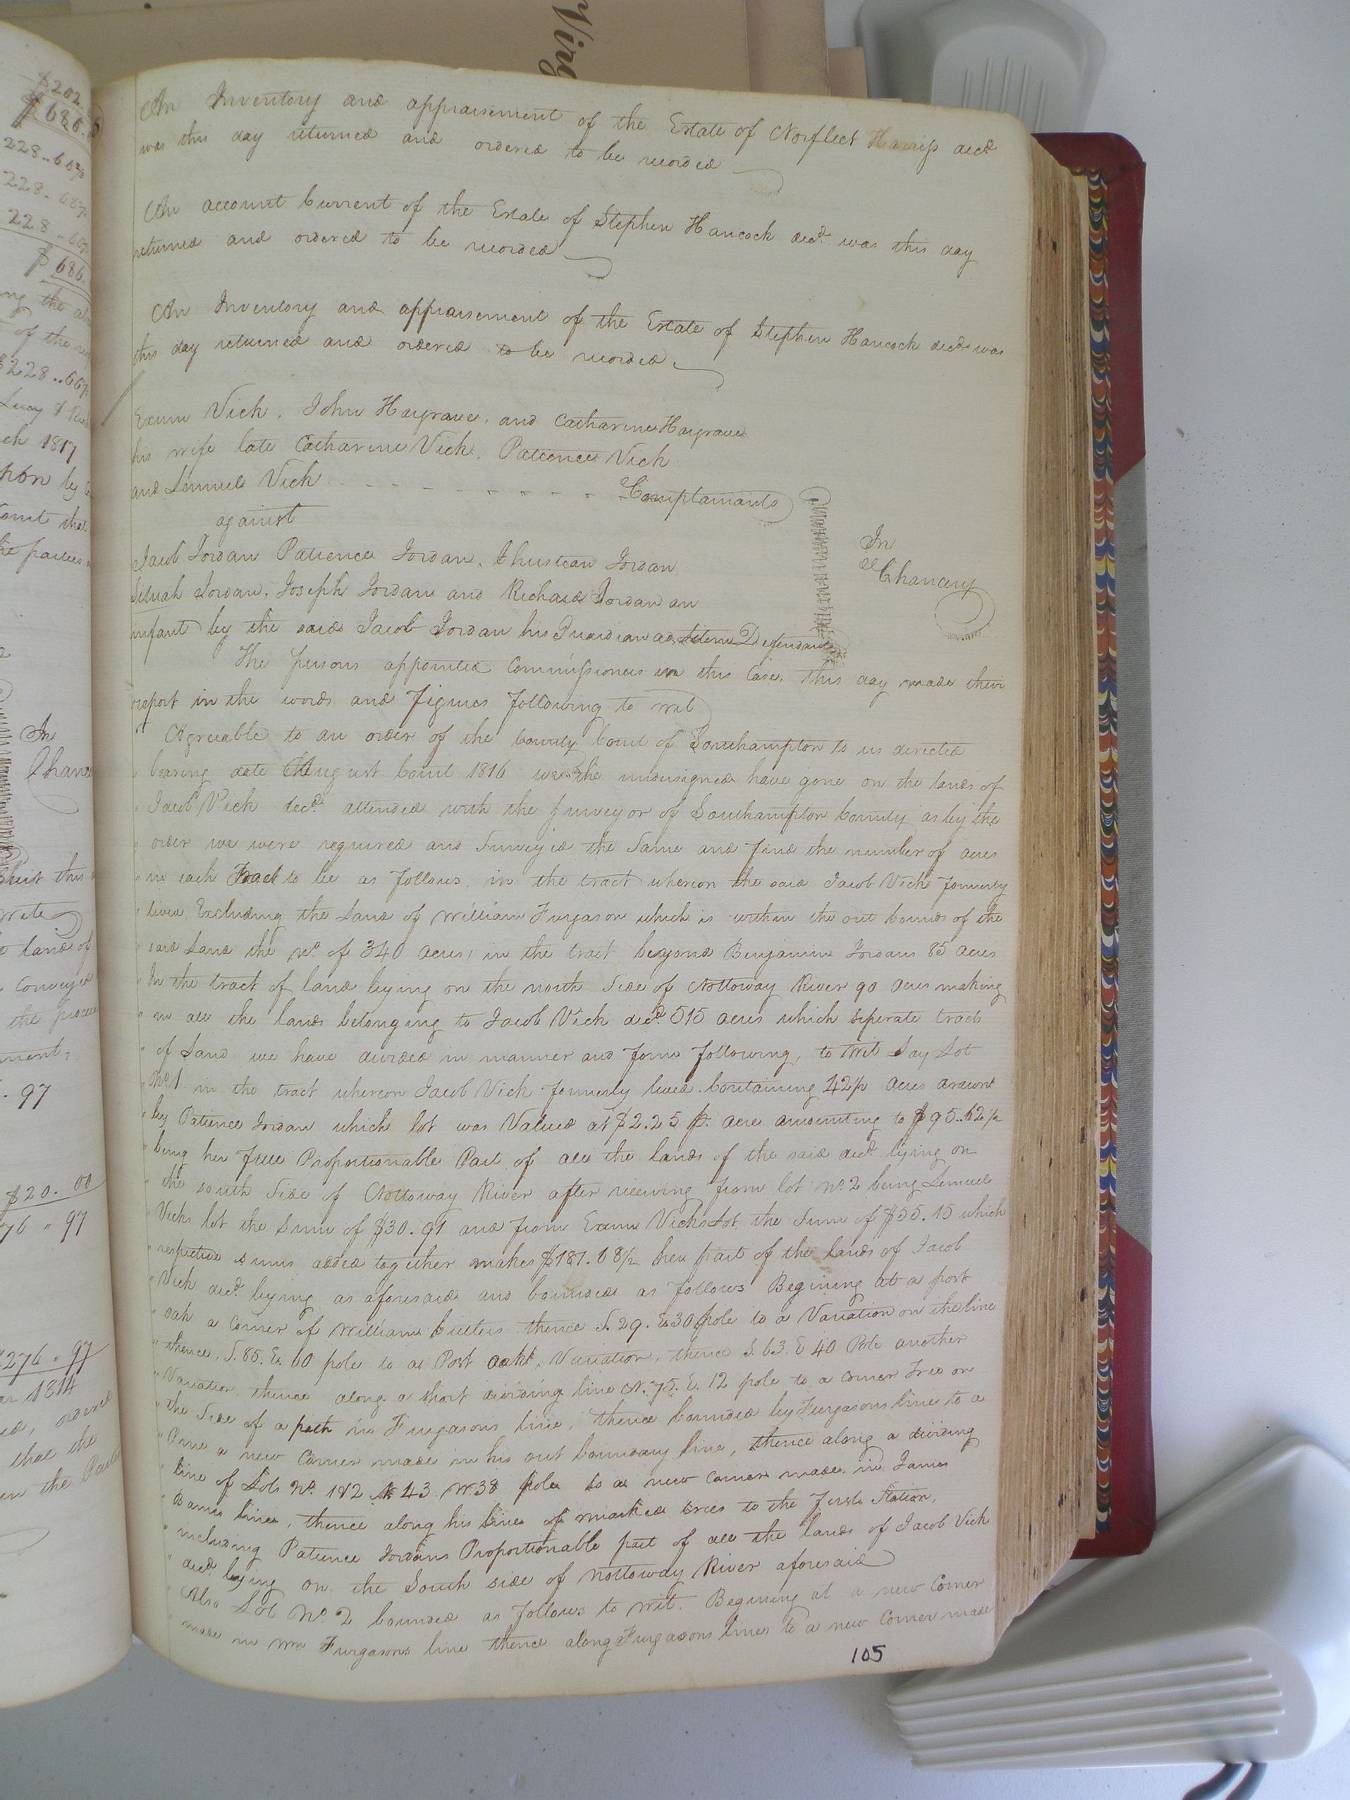 An Inventory and appraisement of the Estate of Norflect Harriss decd
was this day returned and ordered to be recorded
An account Current of the Estate of Stephen Hancock decd was this day
returned and ordered to be recorded
An Inventory and appraisement of the Estate of Stephen Hancock decd was
this day returned and ordered to be recorded
Exum Vick, John Hargrave, and Catharine Hargrave
his wife late Catharine Vick, Patience Vick
and Lemuel Vick Complainants
against
In
Chancery
Jacob Jordan Patience Jordan, Christian Jordan
Jordan, Joseph Jordan and Richard Jordan an
infant by the said Jacob Jordan his Guardian ad litem Defendants
The persons appointed Commissioners in this Case, this day made their
report in the words and figures following to wit
Agreeable to an order of the County Court of Southampton to us directed
bearing date August Court 1816 we the undersigned have gone on the lands of
Jacob Vick decd attended with the Surveyor of Southampton County as by the
order we were required and Surveyed the Same and find the number of acres
in each Tract to be as follows, in the tract whereon the said Jacob Vick formerly
lived Excluding the Land of William Furgason which is within the out bounds of the
said Land the No of 340 acres, in the tract beyond Benjamin Jordans 85 acres
In the tract of land lying on the north Side of Nottoway River 90 acres making
in all the lands belonging to Jacob Vick decd 515 acres which seperate tracts
of Land, we have divided in manner and form following, to wit Say Lot
No 1 in the tract whereon Jacob Vick formerly lived Containing 42½ acres drawn
by Patience Jordan which lot was Valued at $2.25 pr. acre amounting to $95.62½
being her full Proportionable Part of all the lands of the said decd lying on
the south Side of Nottoway River after receiving from lot No 2 being Lemuel
Vicks lot the Sum of $30.91 and from Exum Vicks Lot the Sum of $55.15 which
respective sums added together makes $181.68½ her part of the lands of Jacob
Vick decd lying as aforesaid and bounded as follows Begining at a post
oak a corner of William Cutlers thence S.29.E 30 pole to a Variation on the line
thence, S.85.E. 60 pole to a Post oak, Variation, thence S.63.E 40 Pole another
Variation, thence along a short dividing line N.75.E. 12 pole to a Corner Tree on
the Side of a path in Furgasons line, thence bounded by Furgasons line to a
Pine a new Corner made in his out boundary line, thence along a dividing
line of Lots No. 1 & 2 N 43 W 38 pole to a new corner made in James
line, thence along his line of marked trees to the first Station,
including Patience Jordans Proportionable part of all the lands of Jacob Vick
decd lying on the South side of Nottoway River aforesaid
Also Lot No 2 bounded as follows to wit. Begining at a new Corner
made in Wm Furgasons line thence along Furgasons lines to a new Corner made
105
$202
$686.
228.
228.
228
$686.
1817
In
97
$20.00
76 " 97
276 " 97
1814
ordered
that the
Virg